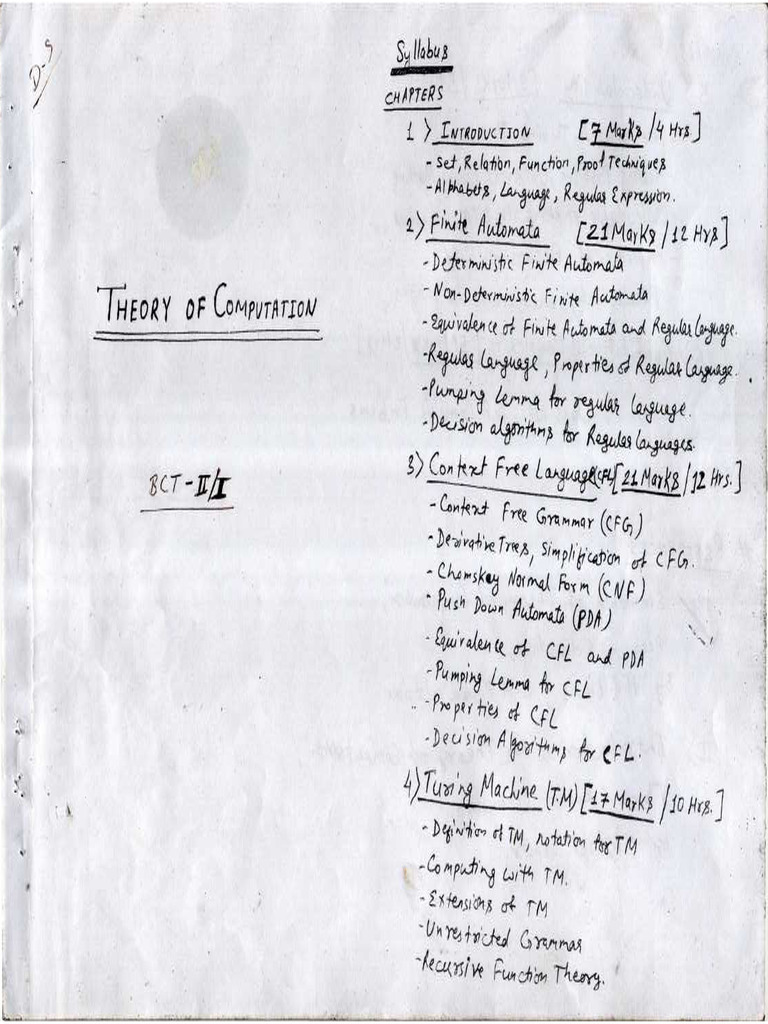 D-S
THEORY OF COMPUTATION
BCT - II/I
Syllabus
CHAPTERS
1) INTRODUCTION [7 Marks / 4 Hrs]
- Set, Relation, Function, Proof Techniques
- Alphabets, Language, Regular Expression.
2) Finite Automata [21 Marks / 12 Hrs]
- Deterministic Finite Automata
- Non-Deterministic Finite Automata
- Equivalence of Finite Automata and Regular Language.
- Regular Language, Properties of Regular Language.
- Pumping Lemma for regular language.
- Decision algorithms for Regular Languages.
3) Context Free Language (CFL) [21 Marks / 12 Hrs.]
- Context Free Grammar (CFG)
- Derivative Trees, Simplification of CFG.
- Chomskey Normal Form (CNF)
- Push Down Automata (PDA)
- Equivalence of CFL and PDA
- Pumping Lemma for CFL
- Properties of CFL
- Decision Algorithms for CFL.
4) Turing Machine (T.M) [17 Marks / 10 Hrs.]
- Definition of TM, notation for TM
- Computing with TM.
- Extensions of TM
- Unrestricted Grammar
- Recursive Function Theory.